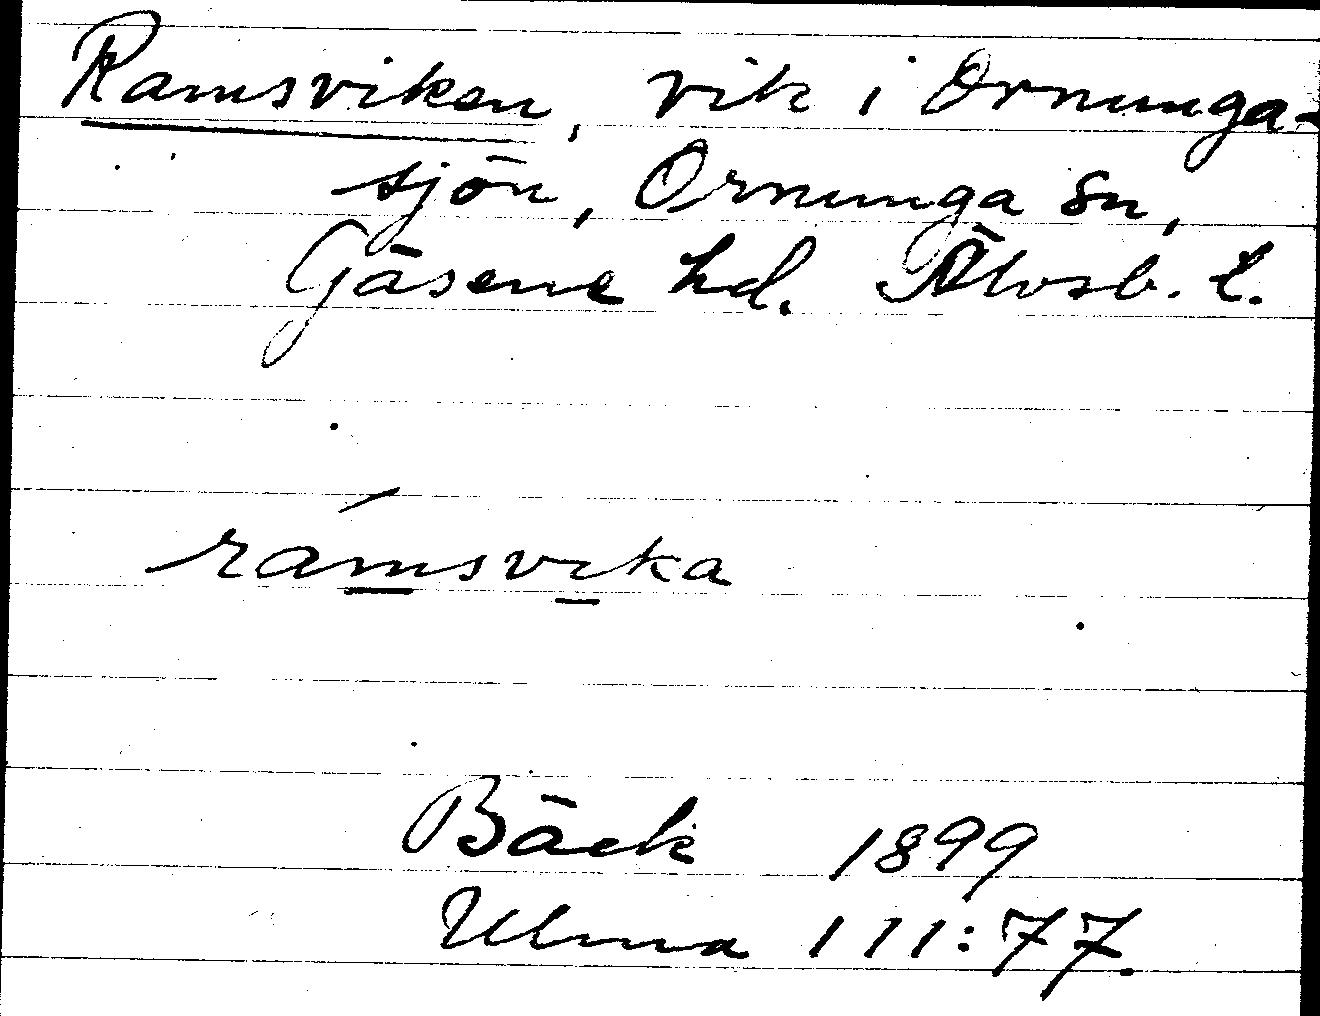 Ramsviken, vik i Ornunga-
sjön, Ornunga sn,
Gäsene hd. Älvsb. l.
rámsvika
Bäck 1899
Ulma 111:77.